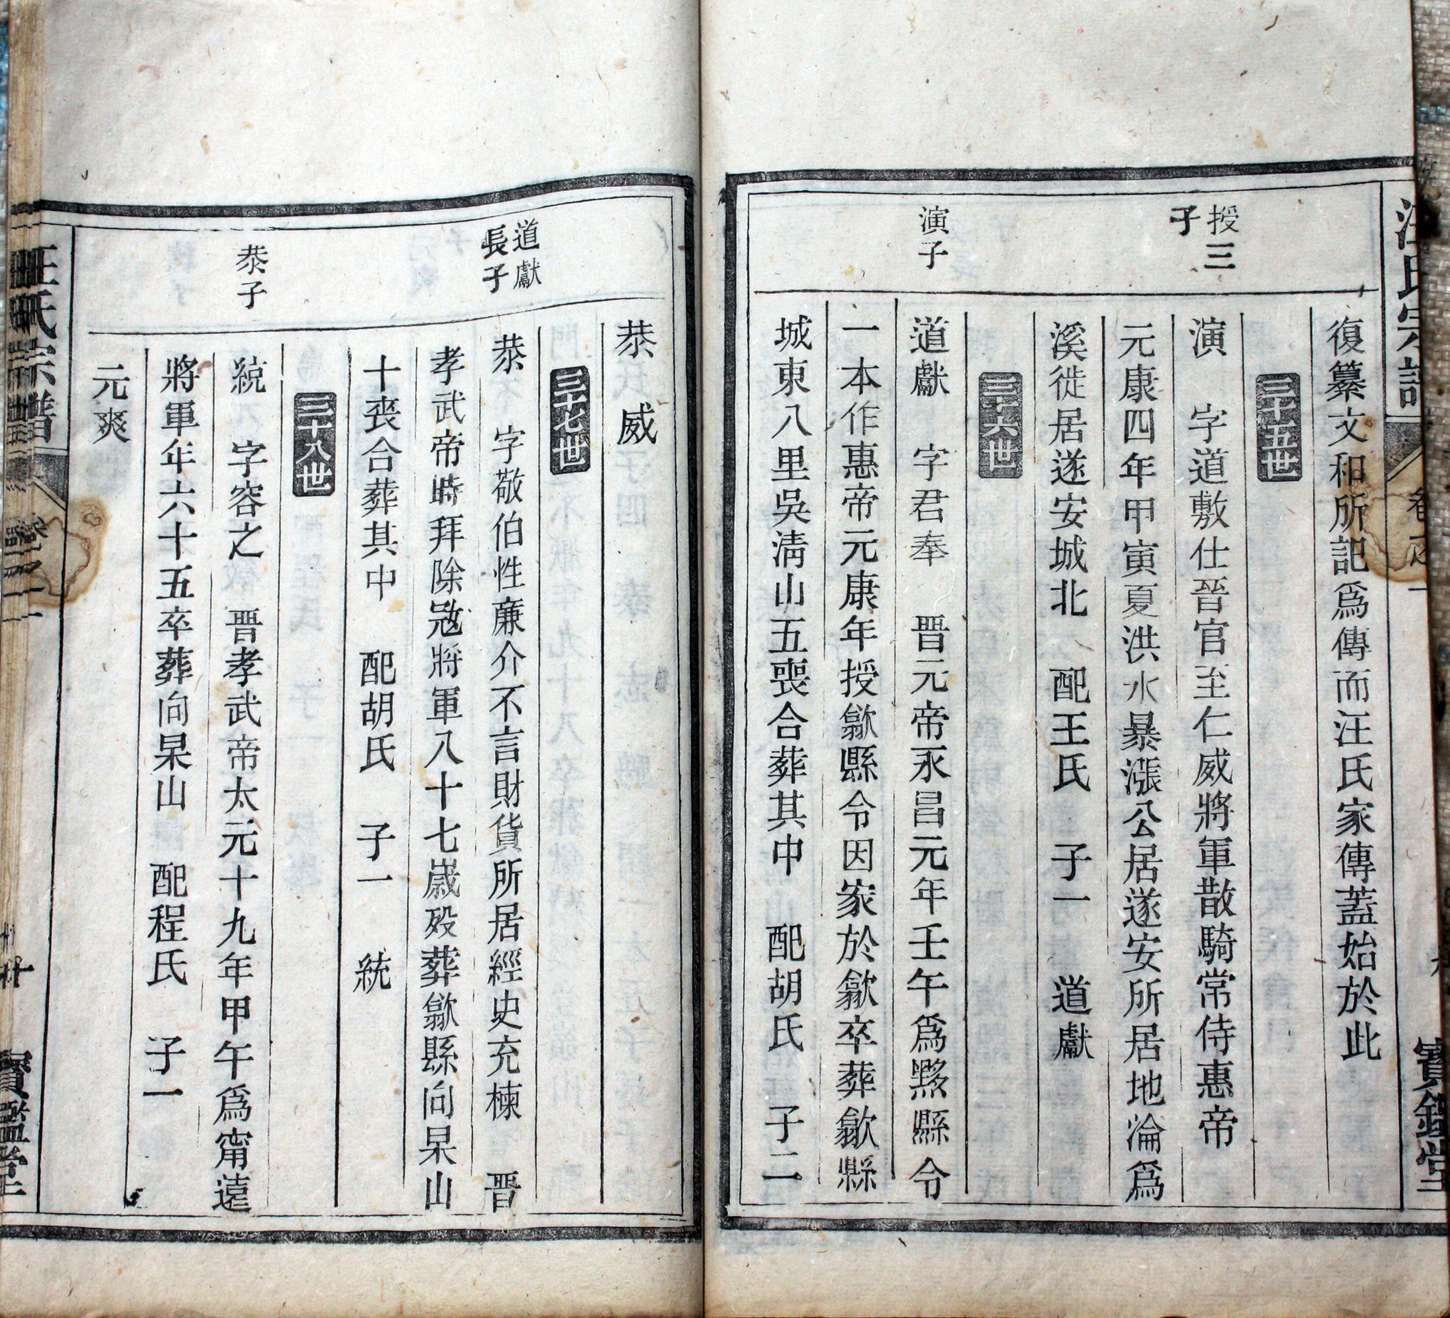 復纂文和所記爲傳而汪氏家傳蓋始於此
三十五世
授三
子
演 字道敷仕晉官至仁威將軍散騎常侍惠帝
元康四年甲寅夏洪水暴漲公居遂安所居地淪爲
溪徙居遂安城北 配王氏 子一 道獻
三十六世
演子
道獻 字君奉 晉元帝永昌元年壬午爲黟縣令
一本作惠帝元康年授歙縣令因家於歙卒葬歙縣
城東八里吳淸山五喪合葬其中 配胡氏 子二
恭 威
三十七世
道獻
長子
恭 字敬伯性廉介不言財貨所居經史充棟 晉
孝武帝時拜除寇將軍八十七歲歿葬歙縣向杲山
十喪合葬其中 配胡氏 子一 統
三十八世
恭子
統 字容之 晉孝武帝太元十九年甲午爲甯遠
將軍年六十五卒葬向杲山 配程氏 子一
元爽
汪氏宗譜
卷之一
十
寶鑑堂